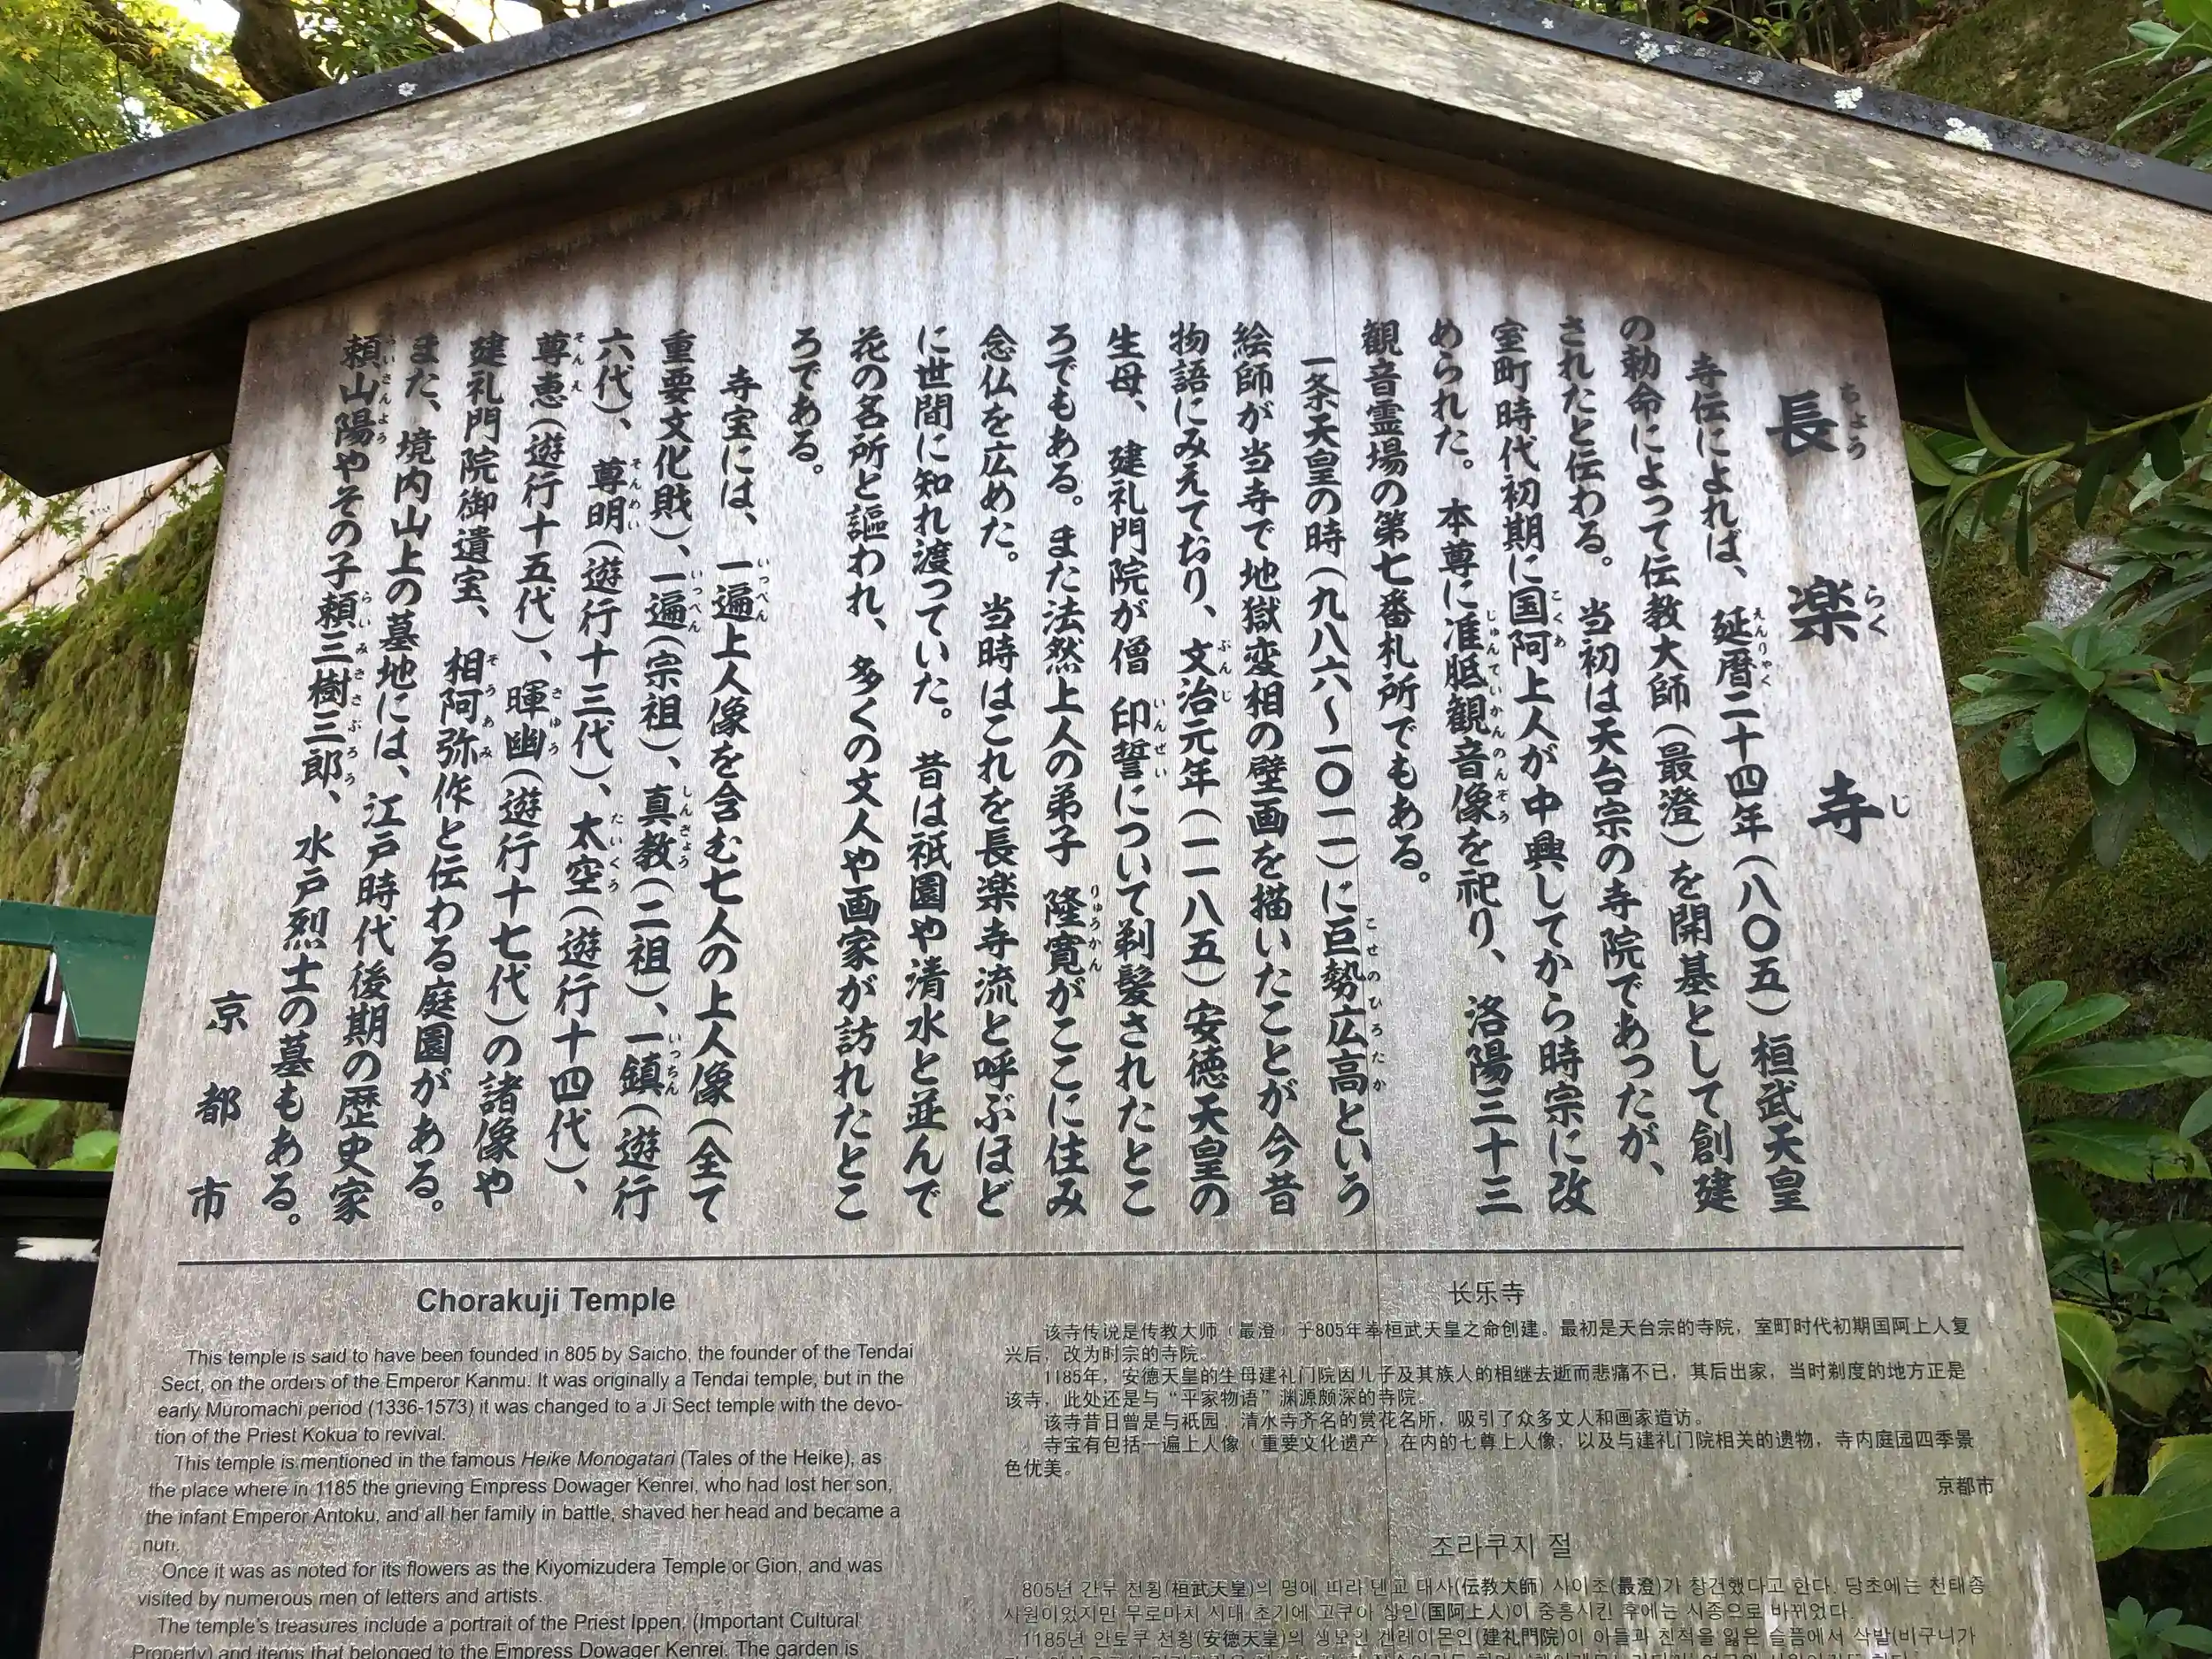 長楽寺
ちょう らく じ
寺伝によれば、延暦二十四年(八〇五)桓武天皇
えんりゃく
の勅命によって伝教大師(最澄)を開基として創建
されたと伝わる。当初は天台宗の寺院であったが、
室町時代初期に国阿上人が中興してから時宗に改
こくあ
められた。本尊に准胝観音像を祀り、洛陽三十三
じゅんていかんのんぞう
観音霊場の第七番札所でもある。
一条天皇の時(九八六〜一〇一一)に巨勢広高という
こせのひろたか
絵師が当寺で地獄変相の壁画を描いたことが今昔
物語にみえており、文治元年(一一八五)安徳天皇の
ぶんじ
生母、建礼門院が僧 印誓について剃髪されたとこ
いんぜい
ろでもある。また法然上人の弟子 隆寛がここに住み
りゅうかん
念仏を広めた。当時はこれを長楽寺流と呼ぶほど
に世間に知れ渡っていた。昔は祇園や清水と並んで
花の名所と謳われ、多くの文人や画家が訪れたとこ
ろである。
寺宝には、一遍上人像を含む七人の上人像(全て
いっぺん
重要文化財)、一遍(宗祖)、真教(二祖)、一鎮(遊行
いっぺん しんきょう いっちん
六代)、尊明(遊行十三代)、太空(遊行十四代)、
そんめい たいくう
尊恵(遊行十五代)、暉幽(遊行十七代)の諸像や
そんえ きゆう
建礼門院御遺宝、相阿弥作と伝わる庭園がある。
そうあみ
また、境内山上の墓地には、江戸時代後期の歴史家
頼山陽やその子頼三樹三郎、水戸烈士の墓もある。
らいさんよう らいみきさぶろう
京都市
Chorakuji Temple
This temple is said to have been founded in 805 by Saicho, the founder of the Tendai
Sect, on the orders of the Emperor Kanmu. It was originally a Tendai temple, but in the
early Muromachi period (1336-1573) it was changed to a Ji Sect temple with the devo-
tion of the Priest Kokua to revival.
This temple is mentioned in the famous Heike Monogatari (Tales of the Heike), as
the place where in 1185 the grieving Empress Dowager Kenrei, who had lost her son,
the infant Emperor Antoku, and all her family in battle, shaved her head and became a
nun.
Once it was as noted for its flowers as the Kiyomizudera Temple or Gion, and was
visited by numerous men of letters and artists.
The temple's treasures include a portrait of the Priest Ippen, (Important Cultural
Property) and items that belonged to the Empress Dowager Kenrei. The garden is
长乐寺
该寺传说是传教大师(最澄)于805年奉桓武天皇之命创建。最初是天台宗的寺院，室町时代初期国阿上人复
兴后，改为时宗的寺院。
1185年，安德天皇的生母建礼门院因儿子及其族人的相继去逝而悲痛不已，其后出家，当时剃度的地方正是
该寺，此处还是与“平家物语”渊源颇深的寺院。
该寺昔日曾是与祇园、清水寺齐名的赏花名所，吸引了众多文人和画家造访。
寺宝有包括一遍上人像(重要文化遗产)在内的七尊上人像，以及与建礼门院相关的遗物，寺内庭园四季景
色优美。
京都市
조라쿠지 절
805년 간무 천황(桓武天皇)의 명에 따라 덴교 대사(伝教大師) 사이초(最澄)가 창건했다고 한다. 당초에는 천태종
사원이었지만 무로마치 시대 초기에 고쿠아 상인(国阿上人)이 중흥시킨 후에는 시종으로 바뀌었다.
1185년 안토쿠 천황(安徳天皇)의 생모인 겐레이몬인(建礼門院)이 아들과 친척을 잃은 슬픔에서 삭발(비구니가